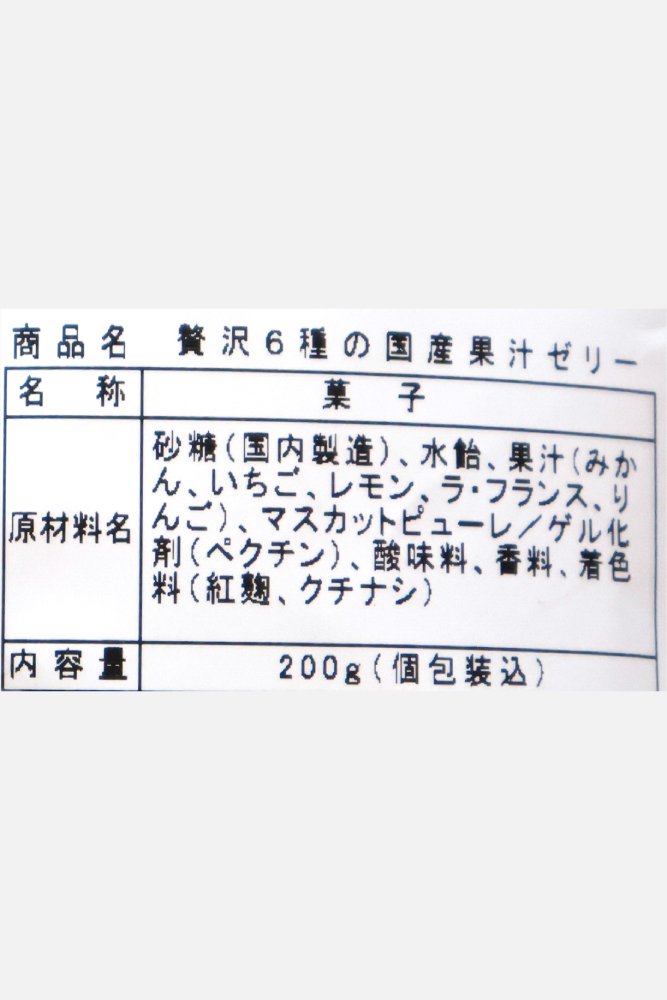 商品名 贅沢6種の国産果汁ゼリー
名称 菓子
原材料名
砂糖(国内製造)、水飴、果汁(みか
ん、いちご、レモン、ラ・フランス、り
んご)、マスカットピューレ/ゲル化
剤(ペクチン)、酸味料、香料、着色
料(紅麹、クチナシ)
内容量 200g(個包装込)